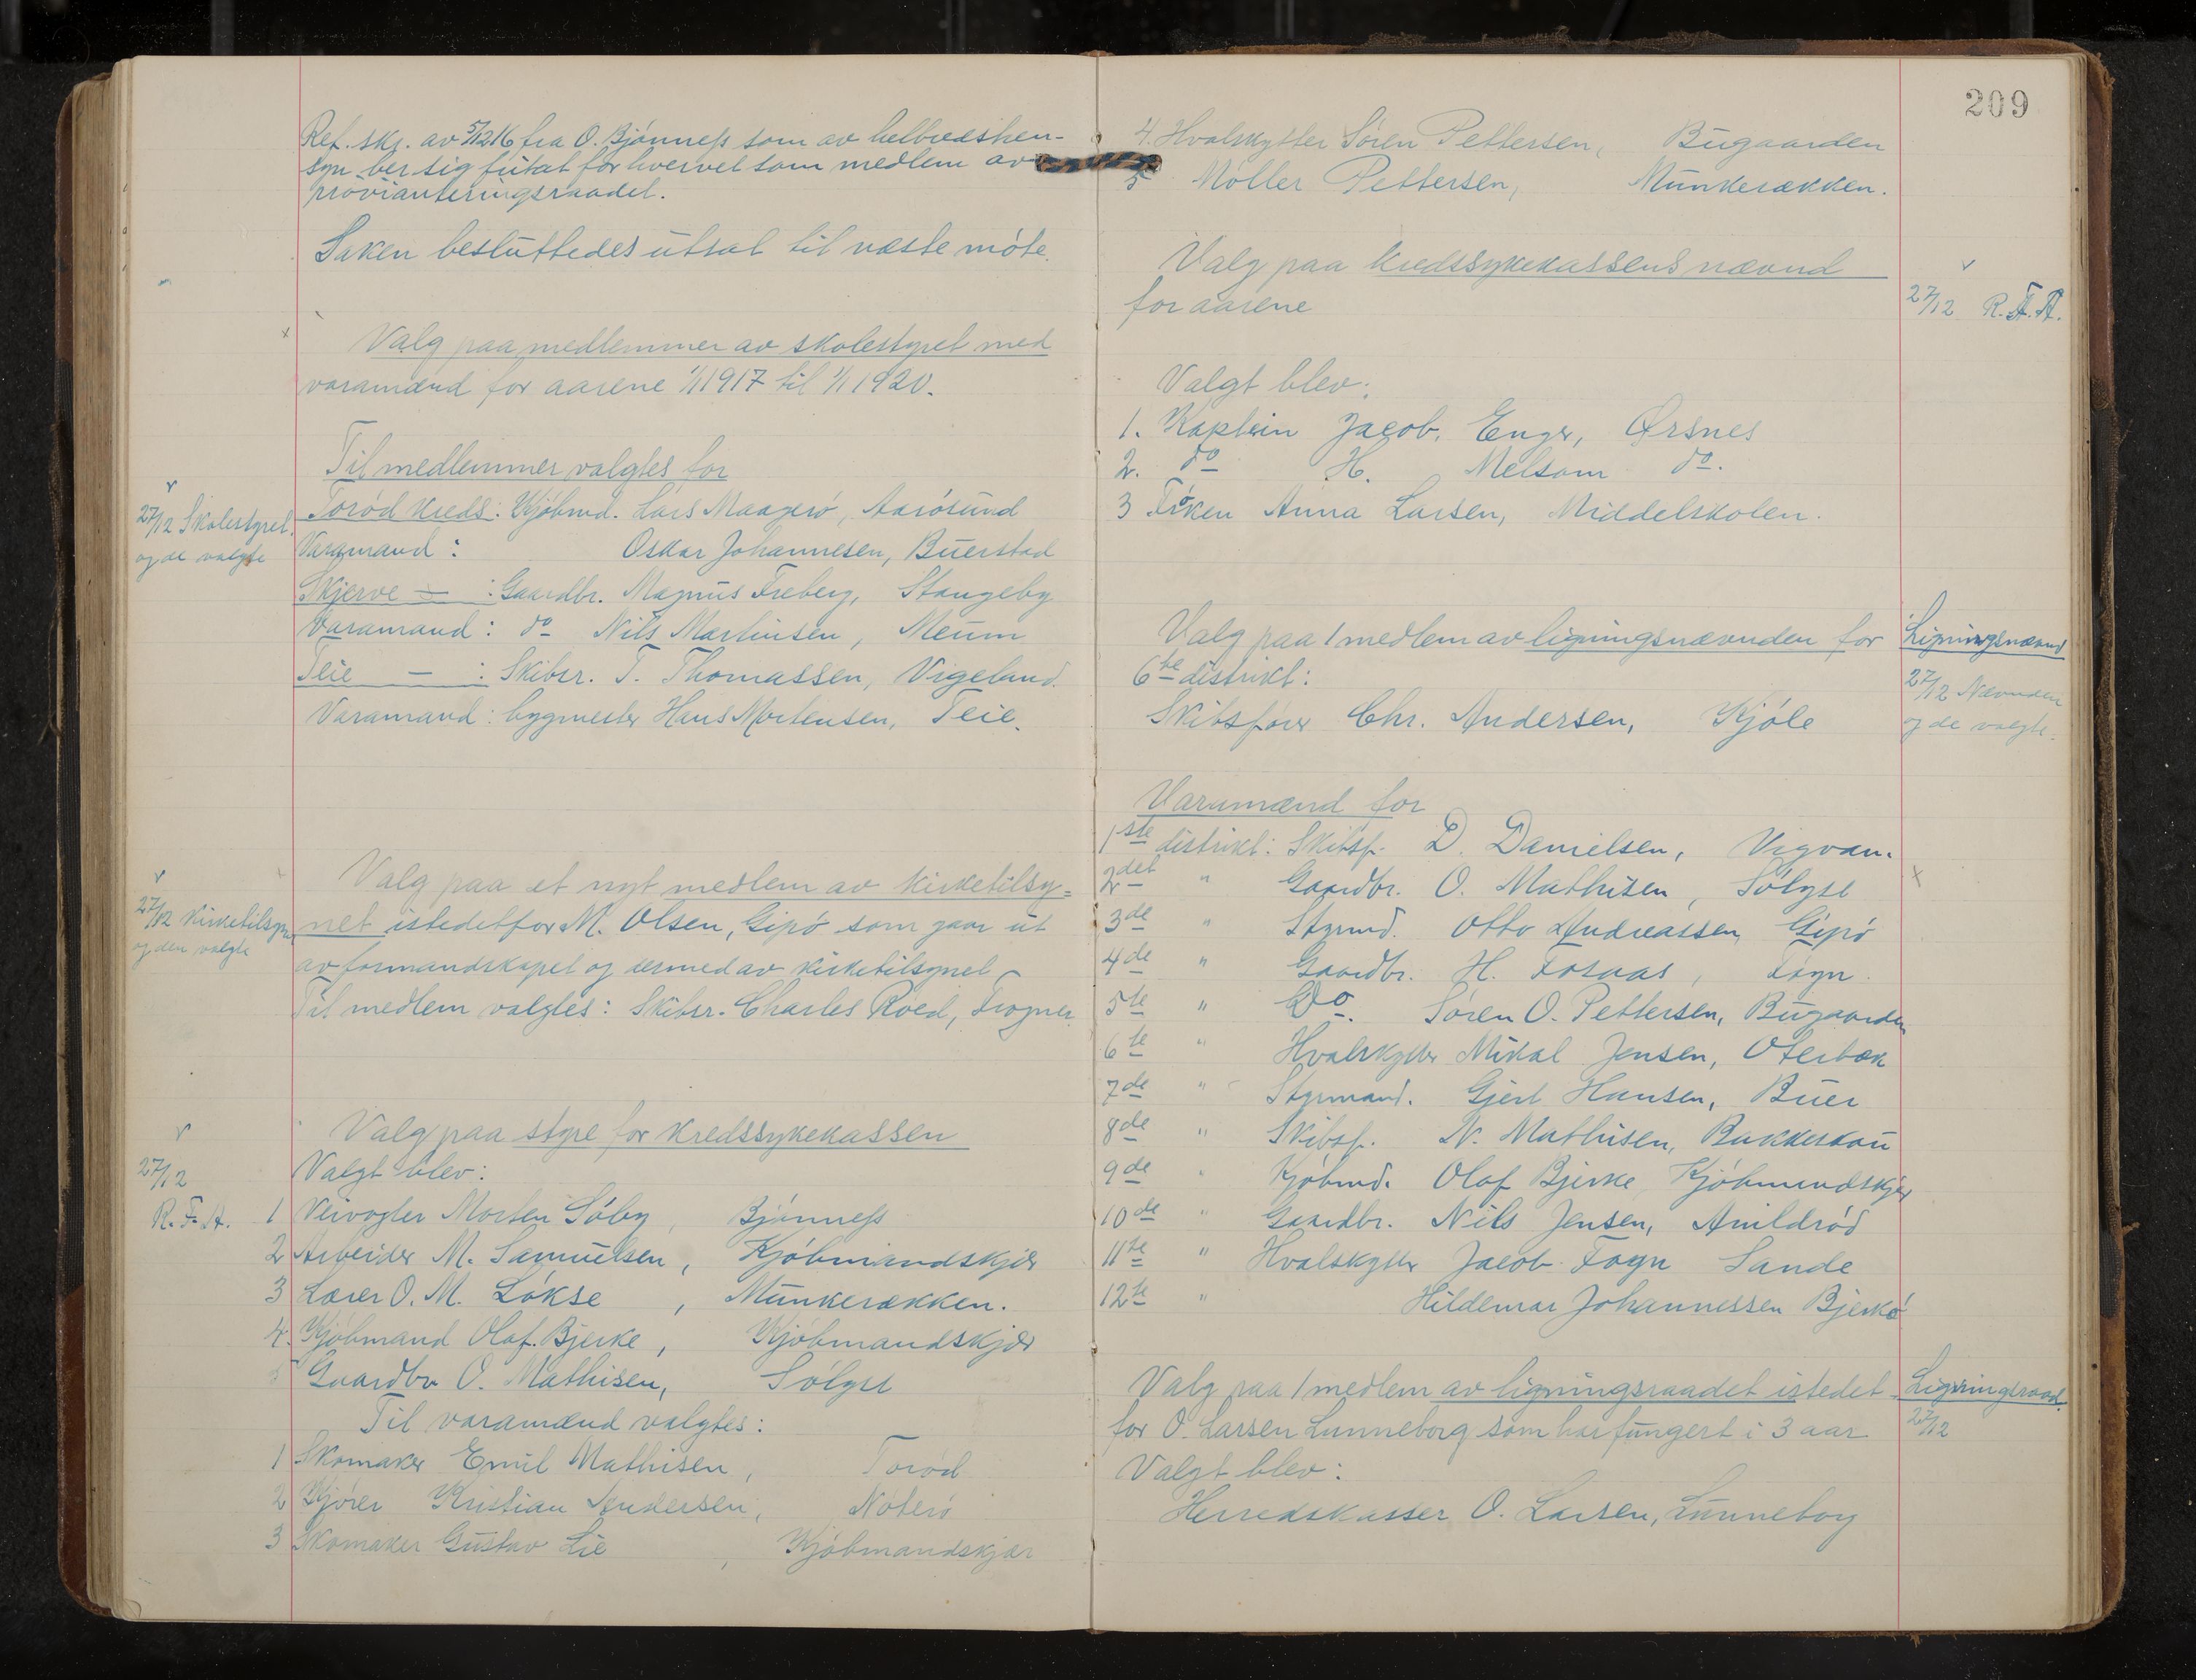 Ref. skr. av 5/12 16 fra O. Bjönness som av helbredshen-
syn ber sig fritat for hvervet som medlem av
provianteringsraadet.
Saken besluttedes utsat til næste möte.
Valg paa medlemmer av skolestyret med
varamænd for aarene 1/1 1917 til 1/1 1920.
Til medlemmer valgtes for
27/12 Skolestyret
og de valgte
Torød kreds: Kjöbmd. Lars Maagerö, Aarösund
Varamand: Oskar Johannesen, Buerstad
Skjerve — : Gaardbr. Magnus Freberg, Stangeby
Varamand: do Nils Martinsen, Meum
Teie — : Skibsr. T. Thomassen, Vigeland.
Varamand: bygmester Hans Mortensen, Teie.
27/12 Kirketilsynet
og den valgte
Valg paa et nyt medlem av kirketilsy=
net istedetfor M. Olsen, Gipö som gaar ut
av formandskapet og dermed av kirketilsynet
Til medlem valgtes: Skibsr. Charles Röed, Trogner.
Valg paa styre for kredssykekassen
27/12
R. F. A.
Valgt blev:
1 Veivogter Morten Söby, Bjönness
2 Arbeider M. Samuelsen, Kjöbmandskjær
3 Lærer O. M. Lökse, Munkerækken.
4. Kjöbmand Olaf. Bjerke, Kjöbmandskjær
5 Gaardbr O. Mathisen, Sölyst
Til varamænd valgtes:
1 Skomaker Emil Mathisen, Torød
2 Kjörer Kristian Andersen, Nöterö
3 Skomaker Gustav Lie, Kjöbmandskjær
209
4. Hvalskytter Sören Pettersen, Bugaarden
5 Möller Pettersen, Munkerækken.
Valg paa kredssykekassens nævnd
for aarene
27/12 R. F. A.
Valgt blev:
1. Kaptein Jacob. Enger, Ørsnes
2. do H. Melsom do.
3 Fröken Anna Larsen, Middelskolen.
Valg paa 1 medlem av ligningsnævnden for
6te distrikt:
Skibsförer Chr. Andersen, Kjöle
Ligningsnævnd
27/12 Nævnden
og de valgte.
Varamænd for
1ste distrikt: Skibsf. D. Danielsen, Vigvan.
2det " Gaardbr. O. Mathisen, Sölyst
3de " Styrmd. Otto Andreassen Gipö
4de " Gaardbr. H. Fosaas, Fögn.
5te " Do. Sören O. Pettersen, Bugaarden
6te " Hvalskytter Mikal Jensen, Oterbæk
7de " Styrmand. Gjert Hansen, Buer
8de " Skibsf. N. Mathisen, Bakkeskau
9de " Kjöbmd. Olaf Bjerke, Kjöbmandskjær
10de " Gaardbr. Nils Jensen, Amildröd
11te " Hvalskytter Jacob Fogn Sande
12te " Hildemar Johannessen Bjerkö
Valg paa 1 medlem av ligningsraadet istedet
for O. Larsen Lunneborg som har fungert i 3 aar
Ligningsraad.
27/12
Valgt blev:
Herredskasser O. Larsen, Lunneborg